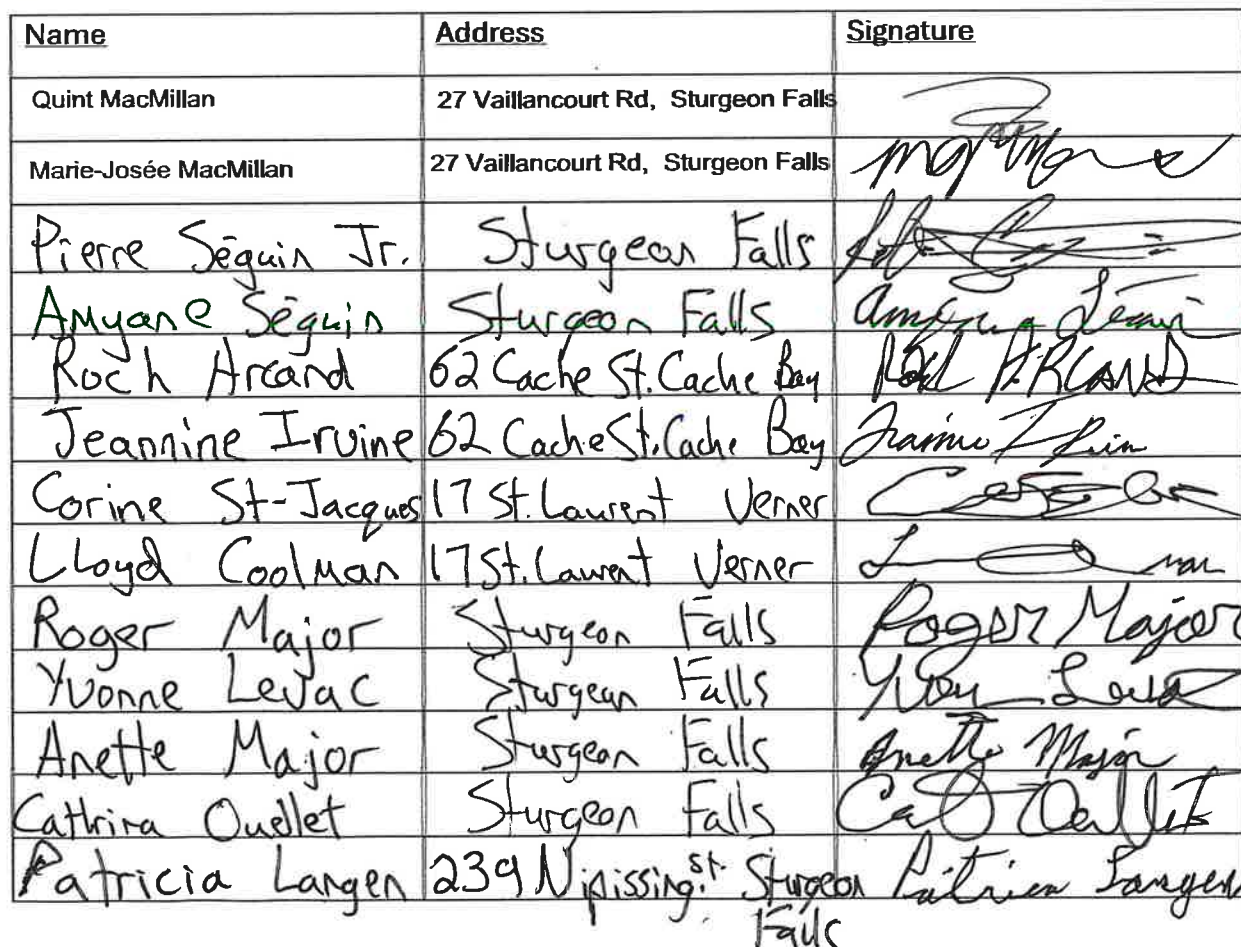 Name Address Signature
Quint MacMillan 27 Vaillancourt Rd, Sturgeon Falls
Marie-Josée MacMillan 27 Vaillancourt Rd, Sturgeon Falls
Pierre Séguin Jr. Sturgeon Falls
Amyane Séguin Sturgeon Falls
Roch Arcand 62 Cache St. Cache Bay Roch ARCAND
Jeannine Irvine 62 Cache St. Cache Bay
Corine St-Jacques 17 St. Laurent Verner
Lloyd Coolman 17 St. Laurent Verner
Roger Major Sturgeon Falls Roger Major
Yvonne Levac Sturgeon Falls
Anette Major Sturgeon Falls Anette Major
Cathrina Ouellet Sturgeon Falls Cat Ouellet
Patricia Langen 239 Nipissing St. Sturgeon Patricia Langen
Falls